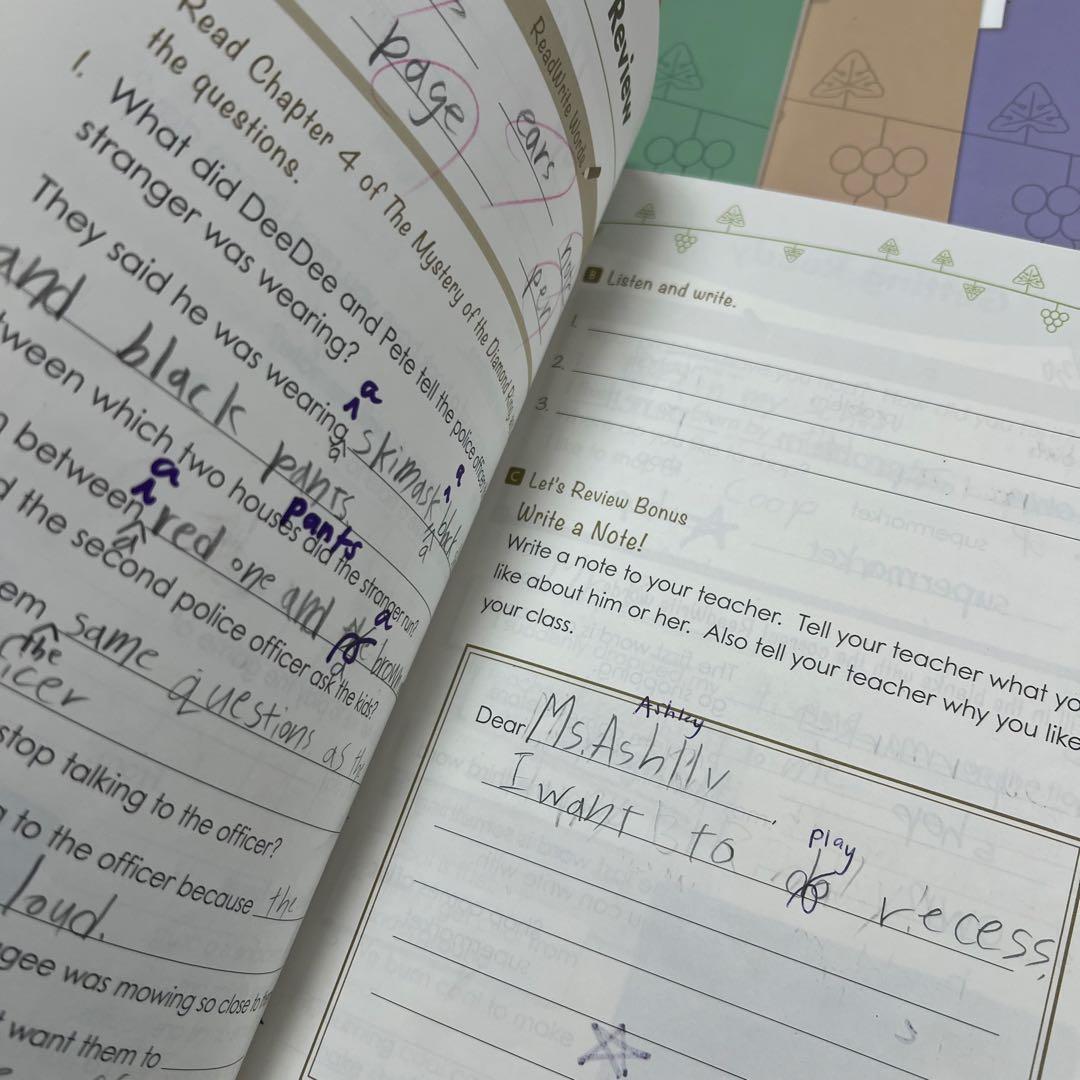 Review
ReadWrite Words
page
ears
pen
Read Chapter 4 of The Mystery of the Diamond Ring
the questions.
1. What did DeeDee and Pete tell the police officer
stranger was wearing?
They said he was wearing a skimask a
and black pants
pants
tween which two houses did the stranger run?
between a red one and a brown
d the second police officer ask the kids?
em the same questions as the
icer
stop talking to the officer?
to the officer because the
loud.
gee was mowing so close to
want them to
B Listen and write.
1.
2.
3.
C Let's Review Bonus
Write a Note!
Write a note to your teacher. Tell your teacher what yo
like about him or her. Also tell your teacher why you like
your class.
Ashley
Dear Ms. Ashlly
I want to play recess.